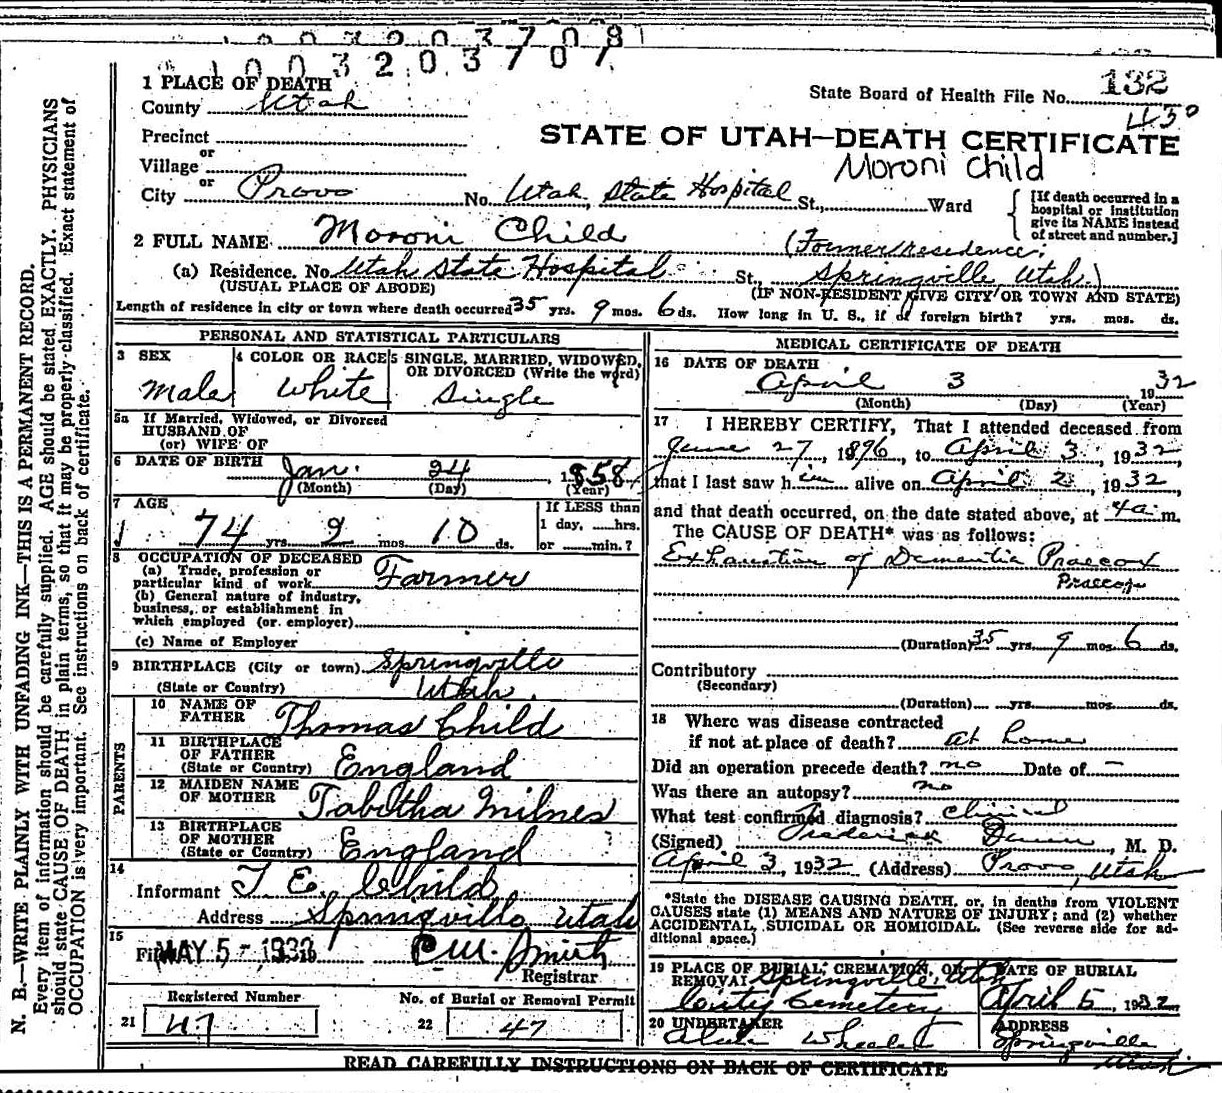 1003203708
1003203707
1 PLACE OF DEATH
County Utah
State Board of Health File No. 132
430
Precinct
or
Village
or
STATE OF UTAH—DEATH CERTIFICATE
Moroni Child
City Provo No. Utah State Hospital St., Ward
[If death occurred in a hospital or institution give its NAME instead of street and number.]
2 FULL NAME Moroni Child
(Former residence:
(a) Residence. No. Utah State Hospital St., Springville, Utah)
(USUAL PLACE OF ABODE) (IF NON-RESIDENT GIVE CITY OR TOWN AND STATE)
Length of residence in city or town where death occurred 35 yrs. 9 mos. 6 ds. How long in U. S., if of foreign birth? yrs. mos. ds.
PERSONAL AND STATISTICAL PARTICULARS
3 SEX 4 COLOR OR RACE 5 SINGLE, MARRIED, WIDOWED,
OR DIVORCED (Write the word)
Male White Single
5a If Married, Widowed, or Divorced
HUSBAND OF
(or) WIFE OF
6 DATE OF BIRTH Jan. 24, 1858
(Month) (Day) (Year)
7 AGE If LESS than
74 yrs. 2 mos. 10 ds. 1 day, ......hrs.
or ......min.?
8 OCCUPATION OF DECEASED
(a) Trade, profession or
particular kind of work Farmer
(b) General nature of industry,
business, or establishment in
which employed (or employer)
(c) Name of Employer
9 BIRTHPLACE (City or town) Springville
(State or Country) Utah.
PARENTS
10 NAME OF
FATHER Thomas Child
11 BIRTHPLACE
OF FATHER
(State or Country) England
12 MAIDEN NAME
OF MOTHER Tabitha Milnes
13 BIRTHPLACE
OF MOTHER
(State or Country) England ?
14
Informant T E. Child
Address Springville Utah
15
Filed MAY 5 - 1932 C.W. Smith
Registrar
Registered Number No. of Burial or Removal Permit
21 47 22 47
MEDICAL CERTIFICATE OF DEATH
16 DATE OF DEATH
April 3 1932
(Month) (Day) (Year)
17 I HEREBY CERTIFY, That I attended deceased from
June 27, 1896, to April 3, 1932
that I last saw him alive on April 2, 1932,
and that death occurred, on the date stated above, at 4 a. m.
The CAUSE OF DEATH* was as follows:
Exhaustion of Dementia Praecox
Praecox
(Duration) 35 yrs. 9 mos. 6 ds.
Contributory
(Secondary)
(Duration) yrs. mos. ds.
18 Where was disease contracted
if not at place of death? at home
Did an operation precede death? no Date of —
Was there an autopsy? no
What test confirmed diagnosis? Clinical
(Signed) Frederick , M. D.
April 3, 1932 (Address) Provo, Utah
*State the DISEASE CAUSING DEATH, or, in deaths from VIOLENT
CAUSES state (1) MEANS AND NATURE OF INJURY; and (2) whether
ACCIDENTAL, SUICIDAL OR HOMICIDAL. (See reverse side for ad-
ditional space.)
19 PLACE OF BURIAL, CREMATION, OR DATE OF BURIAL
REMOVAL Springville, Utah
City Cemetery April 5, 1932
20 UNDERTAKER ADDRESS
Wheeler Springville
Utah
READ CAREFULLY INSTRUCTIONS ON BACK OF CERTIFICATE
N. B.—WRITE PLAINLY WITH UNFADING INK—THIS IS A PERMANENT RECORD.
Every item of information should be carefully supplied. AGE should be stated EXACTLY. PHYSICIANS
should state CAUSE OF DEATH in plain terms, so that it may be properly classified. Exact statement of
OCCUPATION is very important. See instructions on back of certificate.